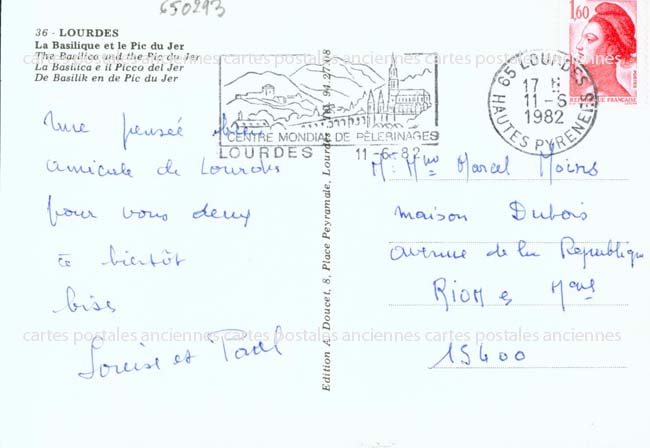 650293
36 - LOURDES
La Basilique et le Pic du Jer
The Basilica and the Pic du Jer
La Basilica e il Picco del Jer
De Basilik en de Pic du Jer
CENTRE MONDIAL DE PÈLERINAGES
LOURDES 11-6-82
65 LOURDES
17 H
11-6
1982
HAUTES PYRENEES
1,60
POSTES
RÉPUBLIQUE FRANÇAISE
Une pensée bien
amicale de Lourdes
pour vous deux
à bientôt
bises
Louise et Paul
Edition A. Doucet, 8, Place Peyramale, Lourdes - Tél. 94.27.08
Mr Mme Marcel Moins
maison Dubois
avenue de la République
RIOM es Mgnes
15400
cartes postales anciennes cartes postales anciennes cartes postales anciennes
cartes postales anciennes cartes postales anciennes cartes postales anciennes